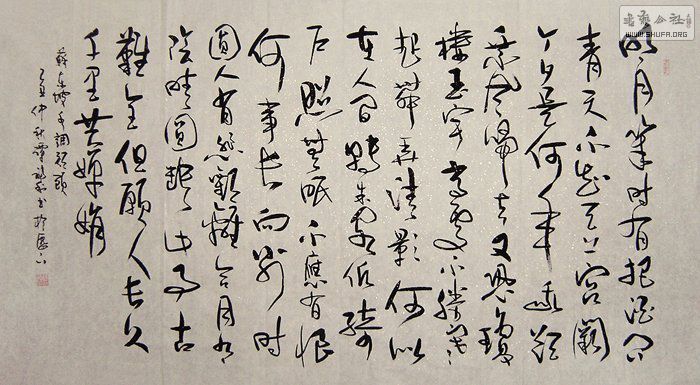 明月幾时有把酒问
青天不知天上宫阙
今夕是何年我欲
乘风归去又恐琼
楼玉宇高处不胜寒
起舞弄清影何似
在人间转朱阁低绮
户照無眠不應有恨
何事长向别时
圆人有悲欢離合月有
阴晴圆缺此事古
難全但願人长久
千里共婵娟
蘇东坡水调歌头
己丑仲秋
书法公社
WWW.SHUFA.ORG